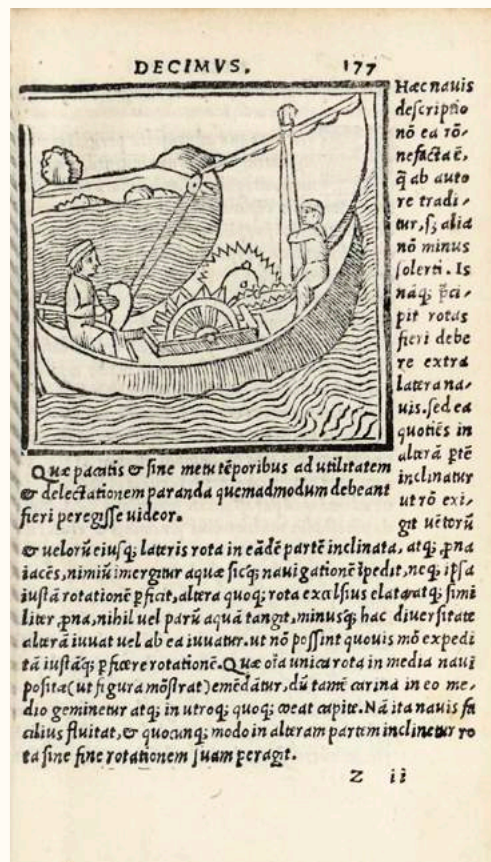 DECIMVS. 177
Hæc nauis
descriptio
nõ ea rõ⸗
ne facta ẽ,
q̃ ab auto
re tradi⸗
tur, sꝫ alia
nõ minus
solerti. Is
nãqꝫ p̃ci⸗
pit rotas
fieri debe
re extra
latera na⸗
uis. sed ea
quotiẽs in
alterã p̃tẽ
inclinatur
ut rõ exi⸗
git uẽtorũ
Quæ pacatis & sine metu tẽporibus ad utilitatem
& delectationem paranda quemadmodum debeant
fieri peregisse uideor.
& uelorũ eiusqꝫ lateris rota in eãdẽ partẽ inclinata, atqꝫ p̃na
iacẽs, nimiũ imergitur aquæ sicqꝫ nauigationẽ ĩpedit, neqꝫ ip̃sa
iustã rotationẽ p̃ficit, altera quoqꝫ rota excelsius elata atqꝫ simi
liter p̃na, nihil uel parũ aquã tangit, minusqꝫ hac diuersitate
alterã iuuat uel ab ea iuuatur. ut nõ possint quouis mõ expedi
tã iustãqꝫ p̃ficere rotationẽ. Quæ oĩa unica rota in media naui
posita (ut figura mõstrat) emẽdãtur, dũ tamẽ carina in eo me⸗
dio geminetur atqꝫ in utroqꝫ quoqꝫ coeat capite. Nã ita nauis fa
cilius fluitat, & quocunqꝫ modo in alteram partem inclinetur ro
ta sine fine rotationem suam peragit.
Z ii